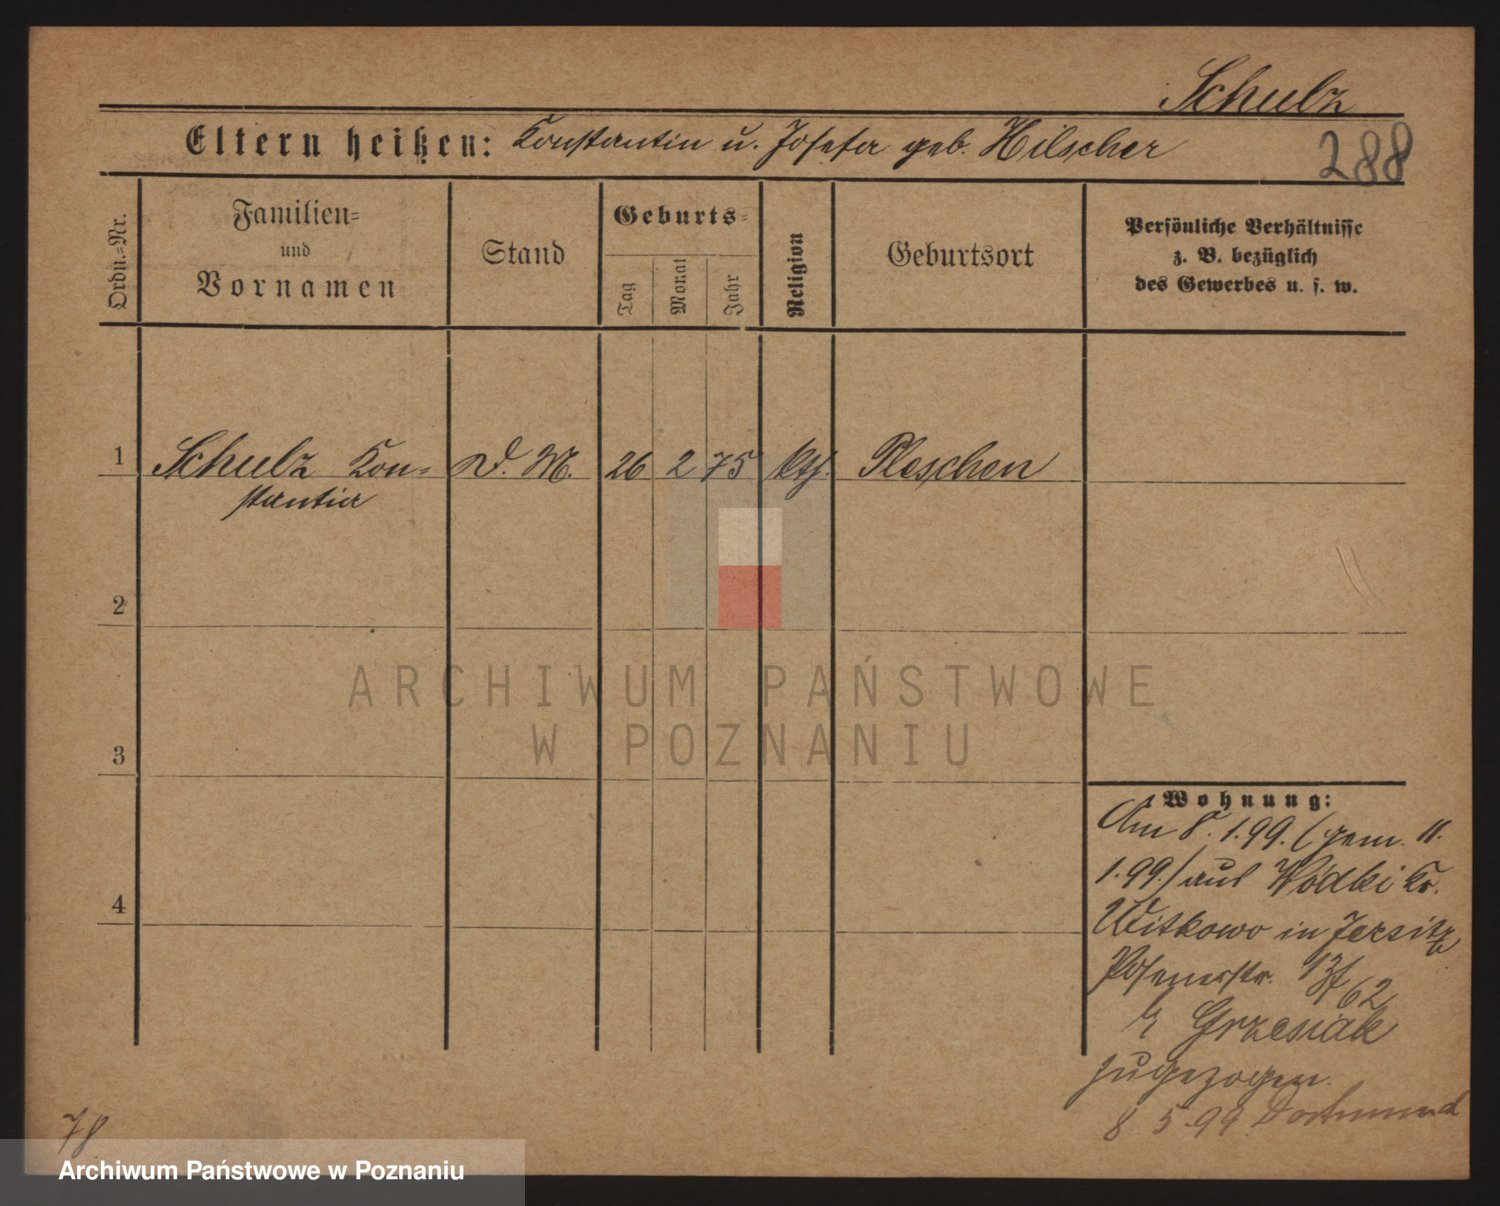 Schulz
Eltern heißen: Konstantin u. Josefa geb. Hilscher
288
Ordn.-Nr.
Familien-
und
Vornamen
Stand
Geburts-
Tag
Monat
Jahr
Religion
Geburtsort
Persönliche Verhältnisse
z. B. bezüglich
des Gewerbes u. s. w.
1 Schulz Kon- D. M. 26 2 75 kth. Pleschen
stantia
2
ARCHIWUM PAŃSTWOWE
W POZNANIU
3
4
Wohnung:
Am 8. 1. 99. (gem. 11.
1. 99.) aus Wódki Kr.
Witkowo in Jersitz
Posenerstr.
62
Grzesiak
zugezogen.
8 5. 99 Dortmund
78
Archiwum Państwowe w Poznaniu